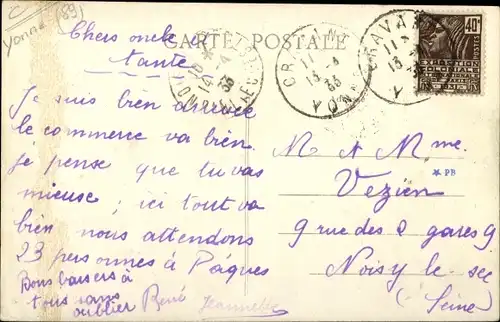 Yonne (89)
CARTE POSTALE
Chers oncle &
tante
Je suis bien arrivée
le commerce va bien.
je pense que tu vas
mieuse ; ici tout va
bien nous attendons
23 personnes à Pâques
Bons baisers à
tous sans
oublier René Jeannette
CRAVANT
YONNE
CRAVANT
40c
EXPOSITION
COLONIALE
INTERNATIONALE
M & Mme.
Vezien
PB
9 rue des 2 gares 9
Noisy le sec
(Seine)